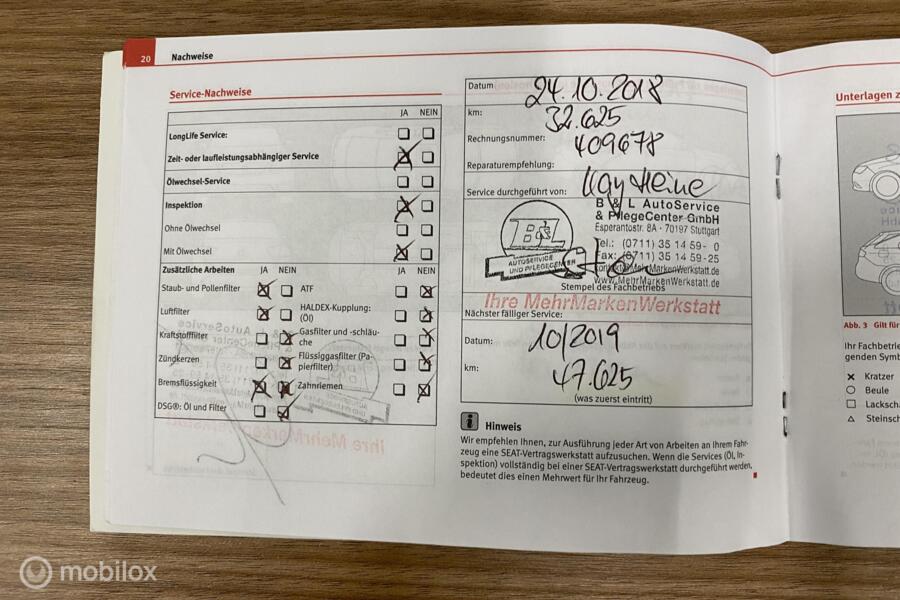 20 Nachweise
Service-Nachweise
JA NEIN
LongLife Service:
Zeit- oder laufleistungsabhängiger Service
Ölwechsel-Service
Inspektion
Ohne Ölwechsel
Mit Ölwechsel
Zusätzliche Arbeiten JA NEIN JA NEIN
Staub- und Pollenfilter ATF
Luftfilter HALDEX-Kupplung: (Öl)
Kraftstofffilter Gasfilter und -schläuche
Zündkerzen Flüssiggasfilter (Papierfilter)
Bremsflüssigkeit Zahnriemen
DSG®: Öl und Filter
Datum 24.10.2018
km: 32.625
Rechnungsnummer: 409678
Reparaturempfehlung:
Service durchgeführt von: Kay Heine
B & L AutoService
& PflegeCenter GmbH
Esperantostr. 8A - 70197 Stuttgart
Tel.: (0711) 35 14 59- 0
Fax: (0711) 35 14 59-25
kontakt@MehrMarkenWerkstatt.de
www.MehrMarkenWerkstatt.de
B&L
AUTOSERVICE
UND PFLEGECENTER
Stempel des Fachbetriebs
Ihre MehrMarkenWerkstatt
Nächster fälliger Service:
Datum: 10/2019
km: 47.625
(was zuerst eintritt)
i Hinweis
Wir empfehlen Ihnen, zur Ausführung jeder Art von Arbeiten an Ihrem Fahr-
zeug eine SEAT-Vertragswerkstatt aufzusuchen. Wenn die Services (Öl, In-
spektion) vollständig bei einer SEAT-Vertragswerkstatt durchgeführt werden,
bedeutet dies einen Mehrwert für Ihr Fahrzeug.
Unterlagen z
Abb. 3 Gilt für
Ihr Fachbetrie
genden Symb
Kratzer
Beule
Lackscha
Steinsch
mobilox